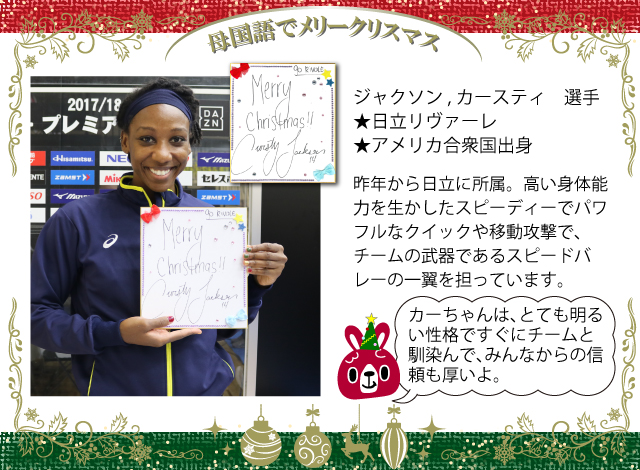 母国語でメリークリスマス
2017/18
・プレミア
DAZN
Hisamitsu
NEC
mizuno
ZAMST
セレスポ
ZAMST
Go RIVALE
Merry
Christmas!!
Kirsty Jackson
Go RIVALE
Merry
Christmas!!
Kirsty Jackson
ジャクソン , カースティ　選手
★日立リヴァーレ
★アメリカ合衆国出身
昨年から日立に所属。高い身体能
力を生かしたスピーディーでパワ
フルなクイックや移動攻撃で、
チームの武器であるスピードバ
レーの一翼を担っています。
カーちゃんは、とても明る
い性格ですぐにチームと
馴染んで、みんなからの信
頼も厚いよ。